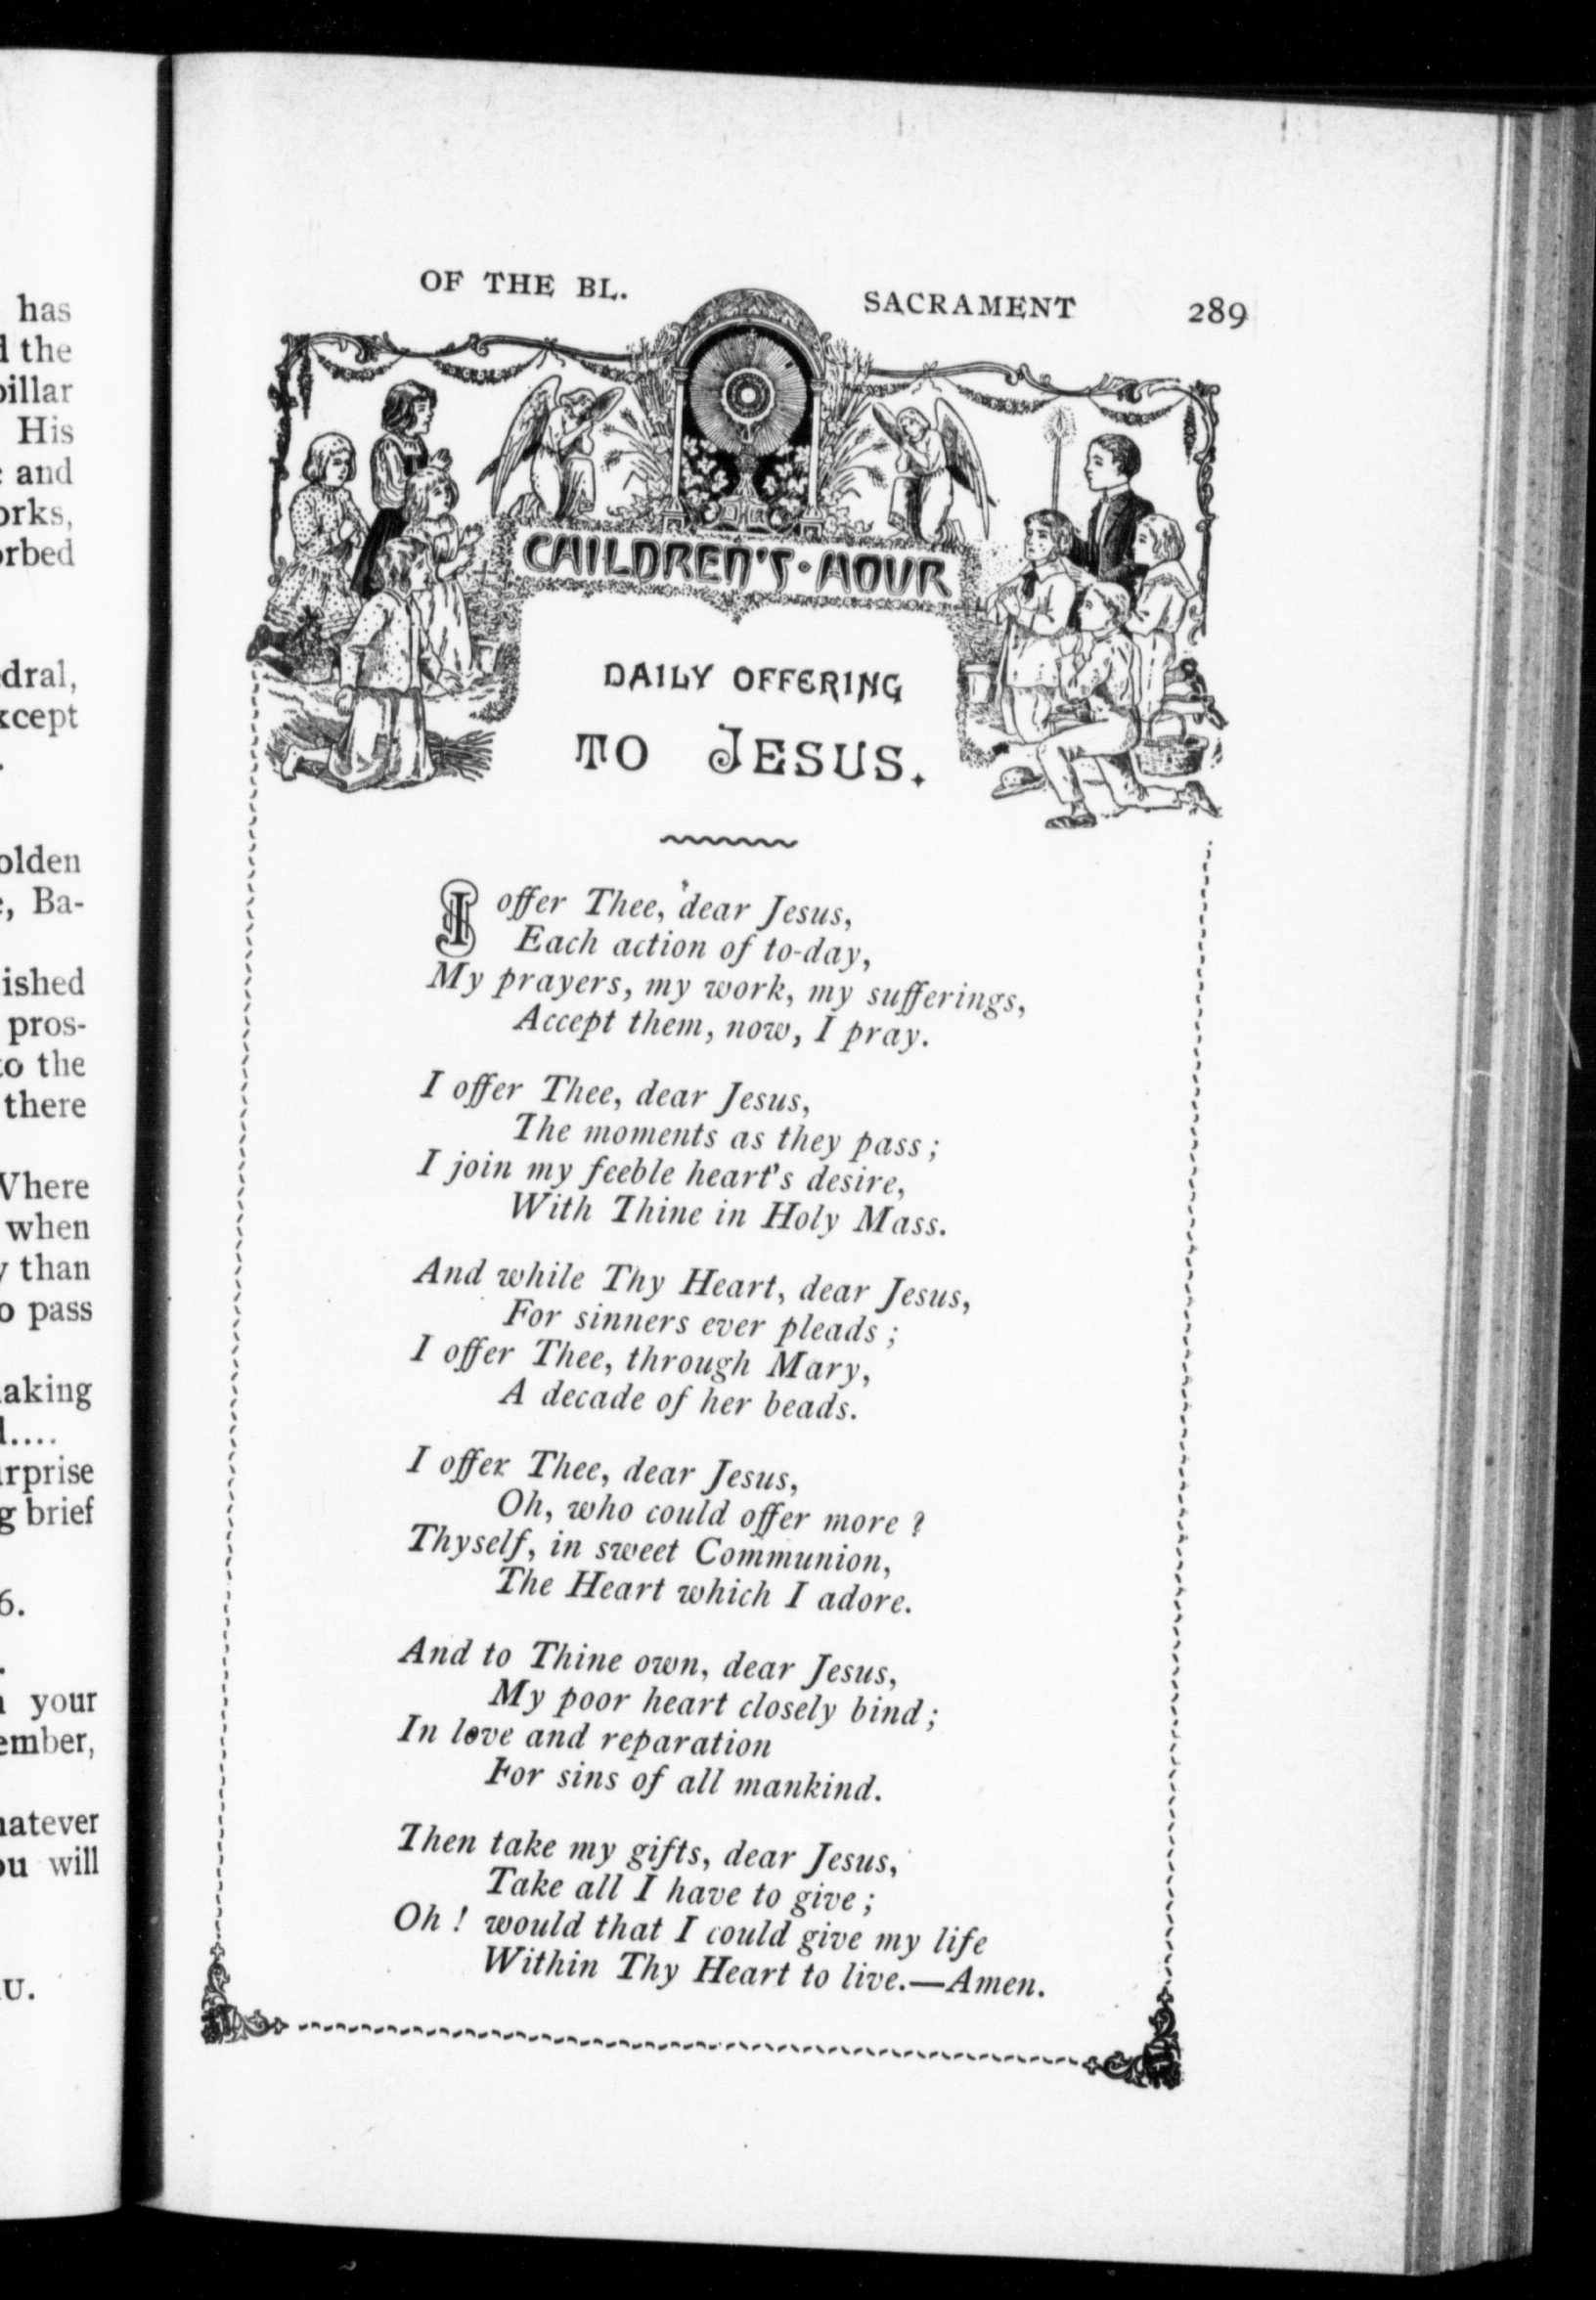 has
the
pillar
His
and
orks,
orbed
edral,
xcept
olden
, Ba-
ished
pros-
to the
there
Where
when
than
to pass
making
....
urprise
brief
6.
your
ember,
hatever
ou will
U.
OF THE BL. SACRAMENT 289
CHILDREN'S • HOUR
DAILY OFFERING
TO JESUS.
I offer Thee, dear Jesus,
Each action of to-day,
My prayers, my work, my sufferings,
Accept them, now, I pray.
I offer Thee, dear Jesus,
The moments as they pass;
I join my feeble heart's desire,
With Thine in Holy Mass.
And while Thy Heart, dear Jesus,
For sinners ever pleads;
I offer Thee, through Mary,
A decade of her beads.
I offer Thee, dear Jesus,
Oh, who could offer more?
Thyself, in sweet Communion,
The Heart which I adore.
And to Thine own, dear Jesus,
My poor heart closely bind;
In love and reparation
For sins of all mankind.
Then take my gifts, dear Jesus,
Take all I have to give;
Oh! would that I could give my life
Within Thy Heart to live.—Amen.